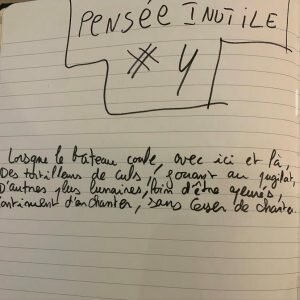 PENSÉE INUTILE
# 4
Lorsque le bateau coule, avec ici et là,
Des tortilleurs de culs, jouant au pugilat,
D'autres plus lunaires, loin d'être apeurés,
Continuent d'enchanter, sans cesser de chanter.